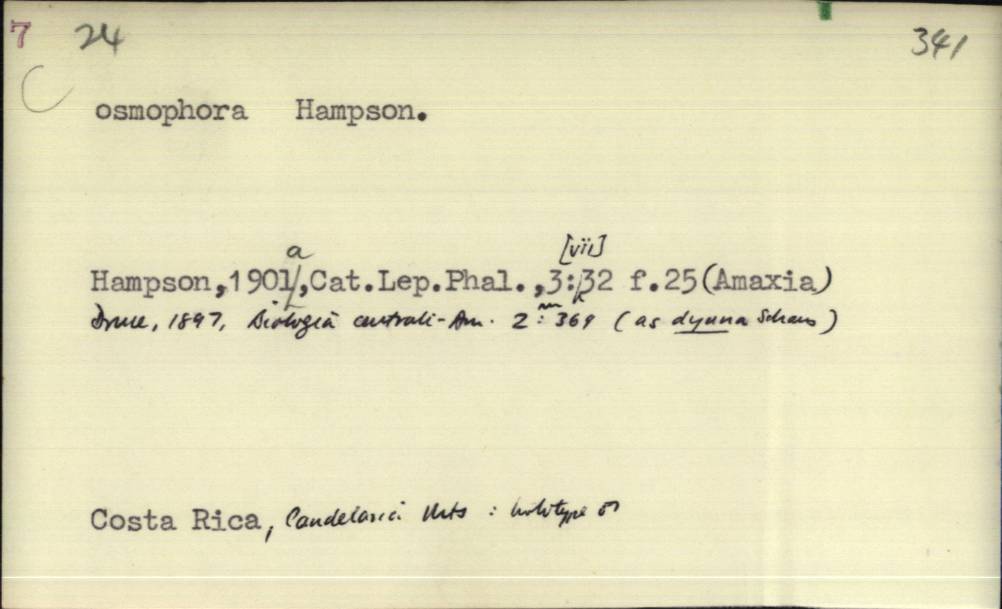 7 24 341
C
osmophora Hampson.
a [vii]
Hampson,1901,Cat.Lep.Phal.,3:32 f.25(Amaxia)
Druce, 1897, Biologia centrali-Am. 2: 369 (as dyuna Schaus)
Costa Rica, Candelaria Mts : holotype ♂